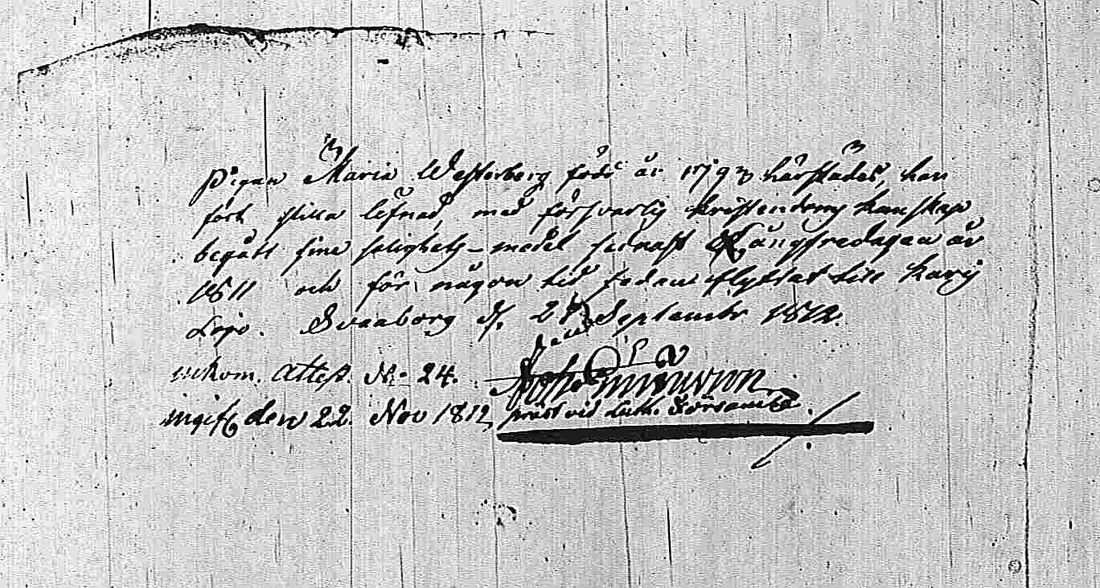 Pigan Maria Westerberg född år 1793 härstädes, har
fört stilla lefnad, med försvarlig kristendoms kunskap
begått sine salighets-medel sednast Långfredagen år
1811 och för någon tid sedan flyttat till Karis
Lojo. Sveaborg d. Septembr 1812.
inkom. Attest. No 24.
ingift den 22. Nov 1812 präst vid Luth. Församl.